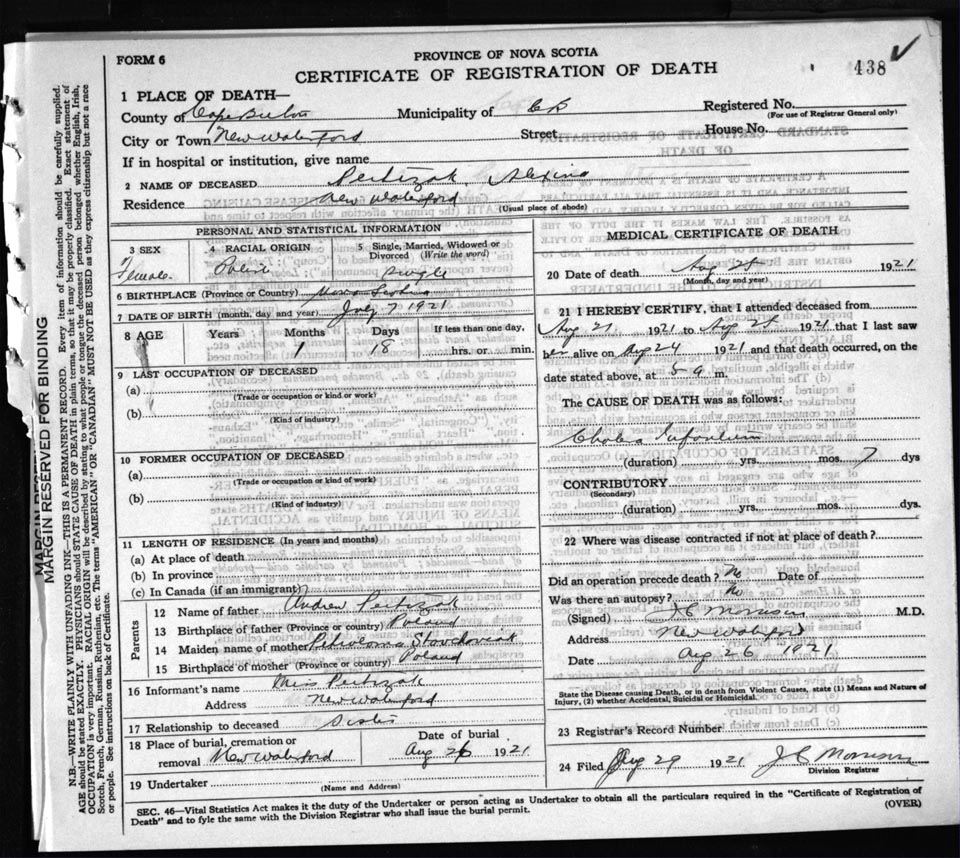 FORM 6
PROVINCE OF NOVA SCOTIA
CERTIFICATE OF REGISTRATION OF DEATH
438
1 PLACE OF DEATH—
County of Cape Breton Municipality of C B Registered No.
(For use of Registrar General only)
City or Town New Waterford Street House No.
If in hospital or institution, give name
2 NAME OF DECEASED Pertizak, Alexina
Residence New Waterford
(Usual place of abode)
PERSONAL AND STATISTICAL INFORMATION
3 SEX 4 RACIAL ORIGIN 5 Single, Married, Widowed or Divorced (Write the word)
Female. Polish Single
6 BIRTHPLACE (Province or Country) Nova Scotia
7 DATE OF BIRTH (month, day and year) July 7 1921
8 AGE Years Months Days If less than one day,
1 18 hrs. or min.
9 LAST OCCUPATION OF DECEASED
(a)
(Trade or occupation or kind or work)
(b)
(Kind of industry)
10 FORMER OCCUPATION OF DECEASED
(a)
(Trade or occupation or kind or work)
(b)
(Kind of industry)
11 LENGTH OF RESIDENCE (In years and months)
(a) At place of death
(b) In province
(c) In Canada (if an immigrant)
Parents
12 Name of father Andrew Pertizak
13 Birthplace of father (Province or Country) Poland
14 Maiden name of mother
15 Birthplace of mother (Province or country) Poland
16 Informant's name Miss Pertizak
Address New Waterford
17 Relationship to deceased Sister
18 Place of burial, cremation or removal New Waterford Date of burial Aug 26 1921
19 Undertaker
(Name and Address)
MEDICAL CERTIFICATE OF DEATH
20 Date of death Aug 25 1921
(Month, day and year)
21 I HEREBY CERTIFY, that I attended deceased from
Aug 21 1921 to Aug 25 1921 that I last saw
her alive on Aug 24 1921 and that death occurred, on the
date stated above, at 5 a m.
The CAUSE OF DEATH was as follows:
Cholera Infantum
(duration) yrs. mos. 7 dys
CONTRIBUTORY
(Secondary)
(duration) yrs. mos. dys.
22 Where was disease contracted if not at place of death?
Did an operation precede death? No Date of
Was there an autopsy? No
(Signed) J C Morrison M.D.
Address New Waterford
Date Aug 26 1921
State the Disease causing Death, or in death from Violent Causes, state (1) Means and Nature of
Injury, (2) whether Accidental, Suicidal or Homicidal.
23 Registrar's Record Number
24 Filed Aug 29 1921 J C Morrison
Division Registrar
SEC. 46—Vital Statistics Act makes it the duty of the Undertaker or person acting as Undertaker to obtain all the particulars required in the "Certificate of Registration of
Death" and to fyle the same with the Division Registrar who shall issue the burial permit.
(OVER)
MARGIN RESERVED FOR BINDING
N.B.—WRITE PLAINLY WITH UNFADING INK—THIS IS A PERMANENT RECORD. Every item of information should be carefully supplied.
AGE should be stated EXACTLY. PHYSICIANS should STATE CAUSE OF DEATH in plain terms, so that it may be properly classified. Exact statement of
OCCUPATION is very important. RACIAL ORIGIN will be described by stating to what people or tongue the deceased person belonged whether English, Irish,
Scotch, French, German, Russian, Ruthenian, etc. The terms "AMERICAN" OR "CANADIAN" MUST NOT BE USED as they express citizenship but not a race
or people. See instructions on back of Certificate.